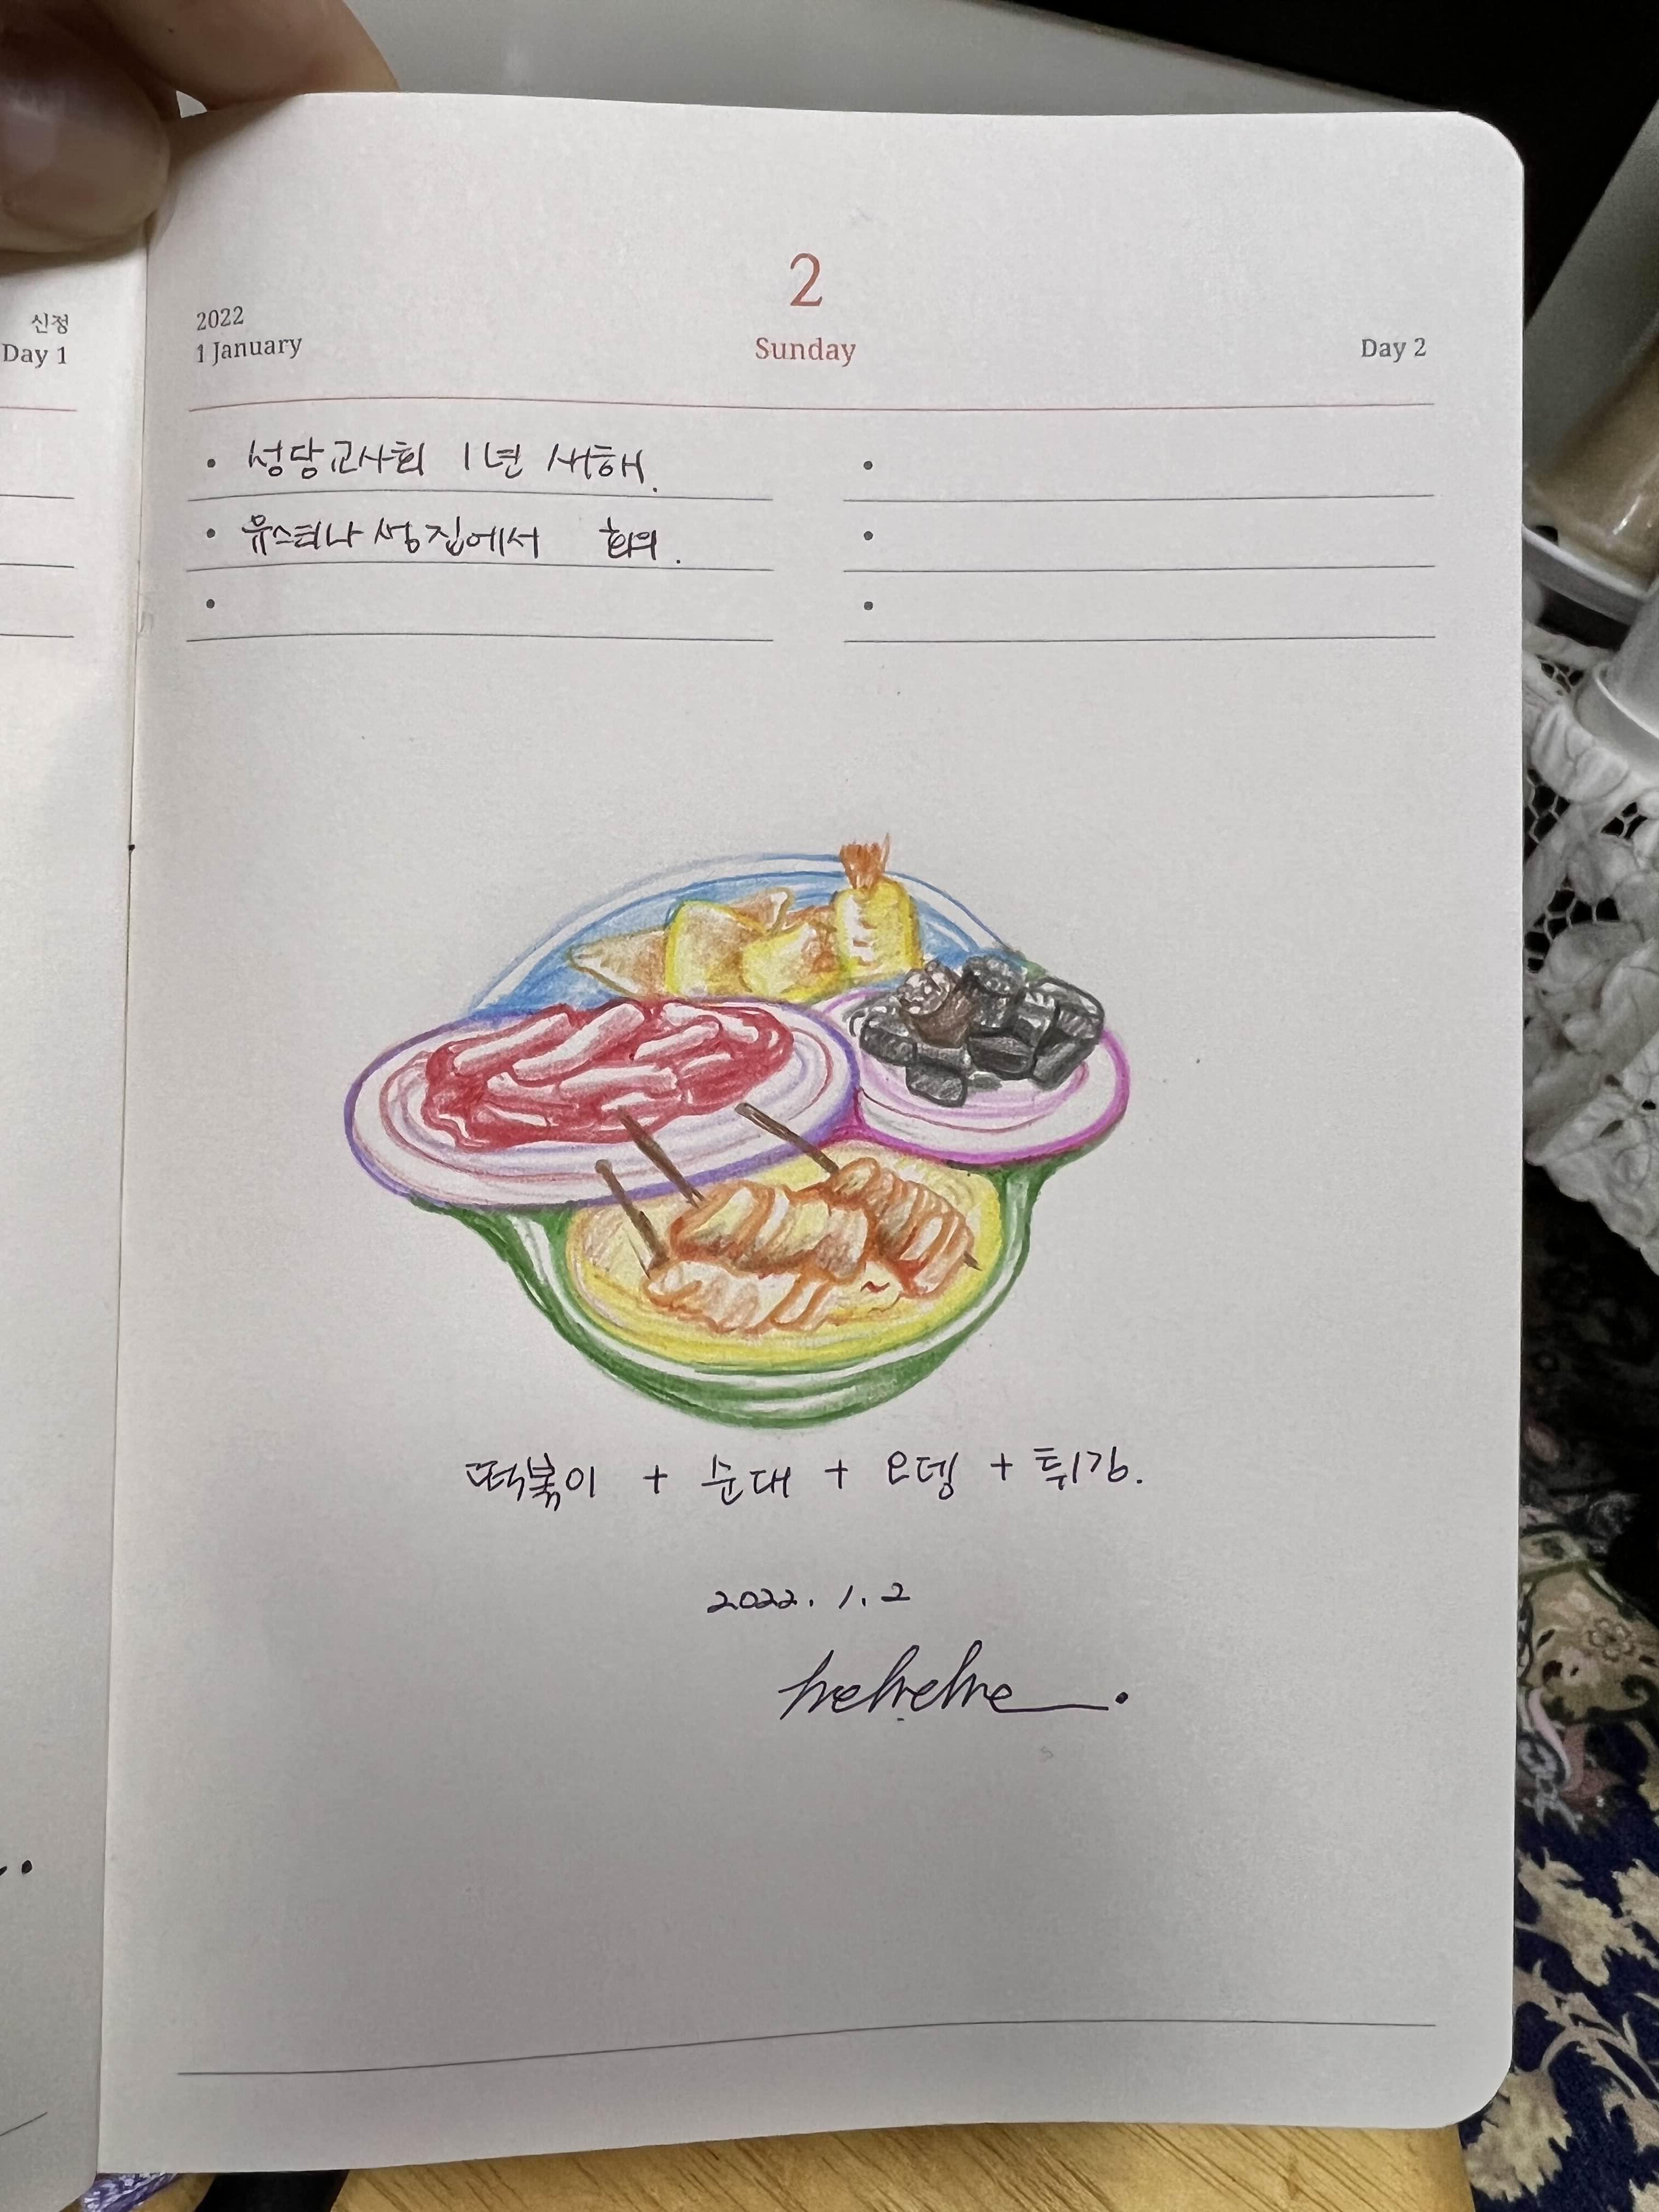 신정
Day 1
2
2022
1 January
Sunday
Day 2
• 성당교사회 1년 새해.
• 유스티나 쌤 집에서 회의.
떡볶이 + 순대 + 오뎅 + 튀김.
2022. 1. 2
hehehe